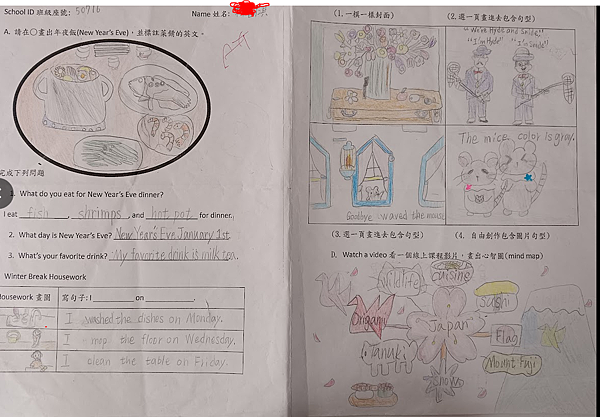 School ID 班級座號: 50716
Name 姓名:
A. 請在○畫出年夜飯(New Year's Eve)，並標註菜餚的英文。
A+
完成下列問題
1. What do you eat for New Year's Eve dinner?
I eat fish, shrimps, and hot pot for dinner.
2. What day is New Year's Eve? New Year's Eve January 1st
3. What's your favorite drink? My favorite drink is milk tea.
Winter Break Housework
Housework 畫圖
寫句子: I ______ on ______.
I washed the dishes on Monday.
I mop the floor on Wednesday.
I clean the table on Friday.
(1. 一模一樣封面)
(2. 選一頁畫進去包含句型)
"We're Hyde and Snide."
"I'm Hyde"
"I'm Snide"
Goodbye waved the mouse
The mice color is gray.
(3. 選一頁畫進去包含句型)
(4. 自由創作包含圖片句型)
D. Watch a video 看一個線上課程影片，畫出心智圖(mind map)
Wildlife
Cuisine
Sushi
Origami
Japan
Flag
Tanuki
Mount Fuji
Snow